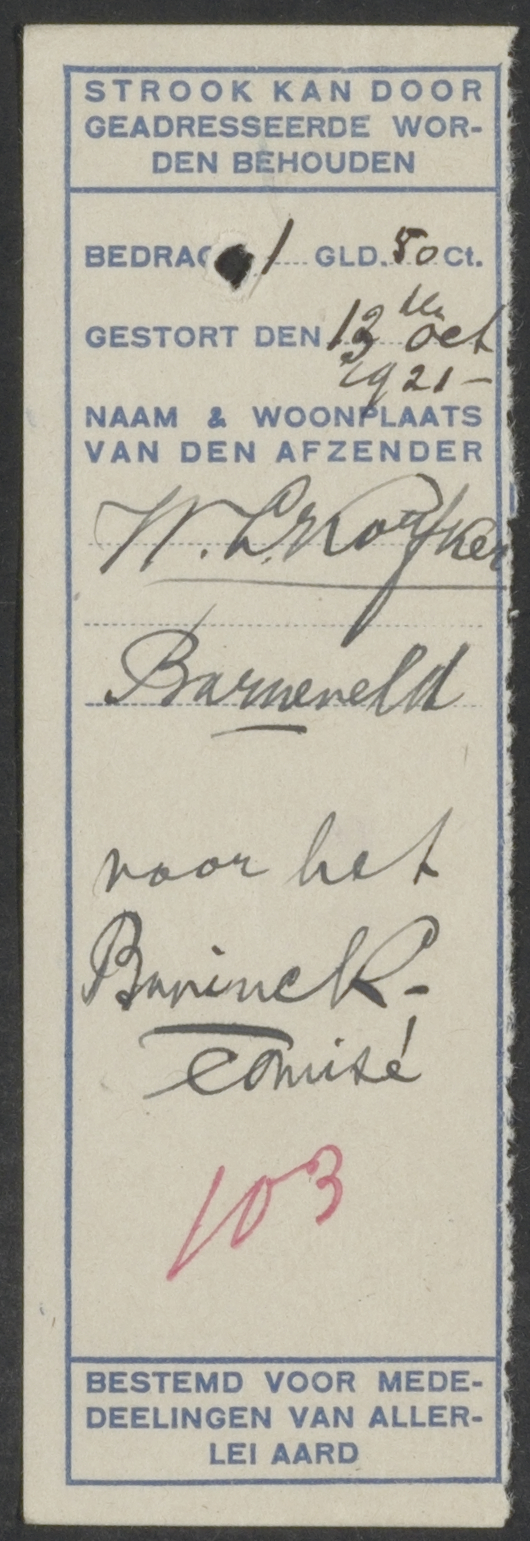 STROOK KAN DOOR
GEADRESSEERDE WOR-
DEN BEHOUDEN
BEDRAG 1 GLD. 50 Ct.
GESTORT DEN 13 Oct
1921 -
NAAM & WOONPLAATS
VAN DEN AFZENDER
W. L.
Barneveld
voor het
Bavinck-
Comité
103
BESTEMD VOOR MEDE-
DEELINGEN VAN ALLER-
LEI AARD